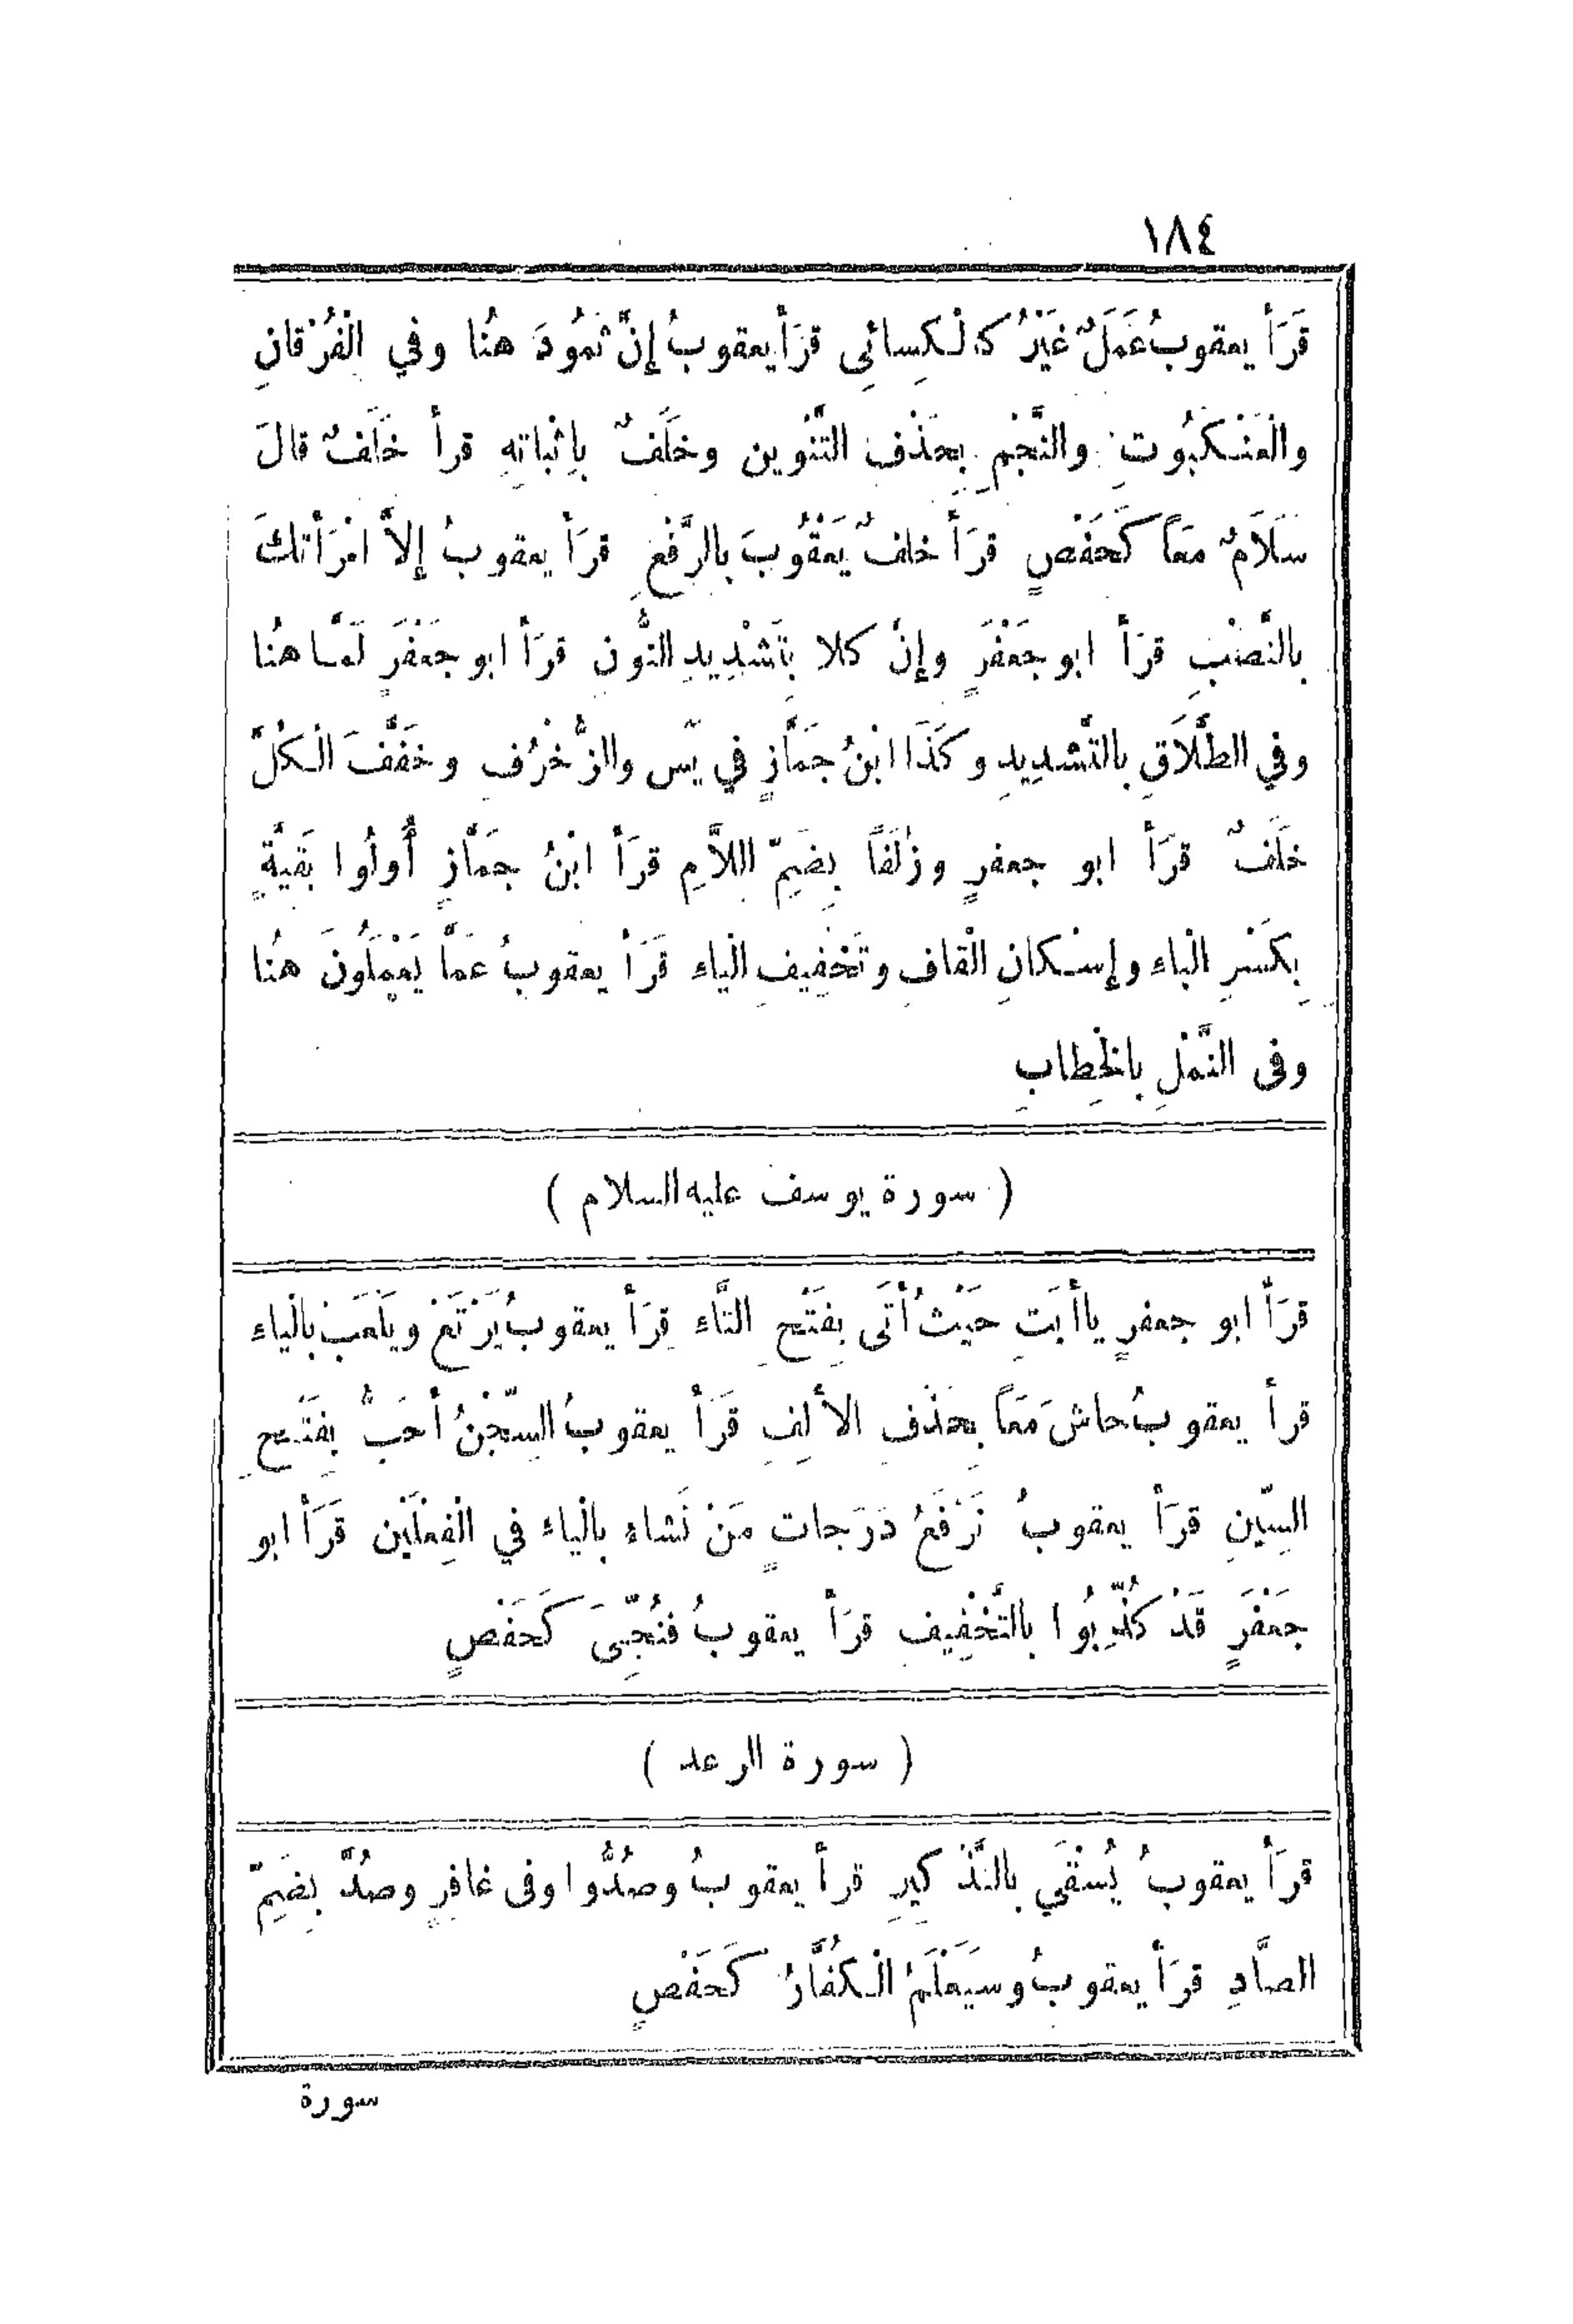 ١٨٤
قَرَأَ يعقوبُ عَمَلٌ غَيْرُ كالْكِسائِى قرَأَ يعقوبُ إنَّ ثَمُودَ هُنا وفي الْفُرْقانِ
والْعَنْكَبُوتِ والنَّجْمِ بِحَذْفِ التَّنْوين وخَلَفٌ بإثْباتهِ قرأ خَلَفٌ قالَ
سَلَامٌ معَاً كَحَفْصٍ قرَأَ خلفٌ يَعْقُوبَ بالرَّفْعِ قرَأَ يعقوبُ إلاَّ امْرَأتكَ
بالنَّصْبِ قرَأَ ابو جَعْفَرٍ وإنَّ كلا بتَشْدِيدِ النُّون قرَأَ ابو جَعْفَرٍ لَمَّا هُنا
وفي الطَّلَاقِ بالتَّشْدِيدِ وكَذَا ابْنُ جَمَّازٍ في يٓس والزُّخْرُفِ وخَفَّفَ الْكُلَّ
خَلَفٌ قرَأَ ابو جعفرٍ وزُلَفَاً بِضَمِّ اللاَّمِ قرَأَ ابْنُ جمَّازٍ أُولُوا بَقِيَّةٍ
بِكَسْرِ الْباءِ وإسْكانِ الْقافِ وتَخْفِيفِ الْياءِ قَرَأَ يعقوبُ عَمَّا يَعْمَلُونَ هُنا
وفى النَّمْلِ بالْخِطابِ
( سورة يوسف عليه السلام )
قرَأَ ابو جعفرٍ ياأَبَتِ حَيْثُ أتَى بِفَتْحِ التَّاء قرَأَ يعقوبُ يَرْتَعْ ويَلعَبْ بالْياءِ
قرأ يعقوبُ حاشَ مَعَاً بِحَذْفِ الألِفِ قَرَأَ يعقوبُ السِّجْنُ أحَبُّ بِفَتْحِ
السِّينِ قرَأَ يعقوبُ نَرْفَعُ دَرَجاتٍ مَنْ نَشاء بالْياء في الْفِعْلَيْنِ قَرَأَ ابو
جَعْفَرٍ قَدْ كُذِّبُوا بالتَّخْفِيفِ قرَأَ يعقوبُ فنُجِّيَ كَحَفْصٍ
( سورة الرعد )
قرَأَ يعقوبُ يُسْقَي بالتَّذْكِيرِ قرأ يعقوبُ وصُدُّوا وفى غافِرٍ وصُدَّ بِضَمِّ
الصَّادِ قرَأَ يعقوبُ وسَيَعْلَمُ الْكُفَّارُ كَحَفْصٍ
سورة